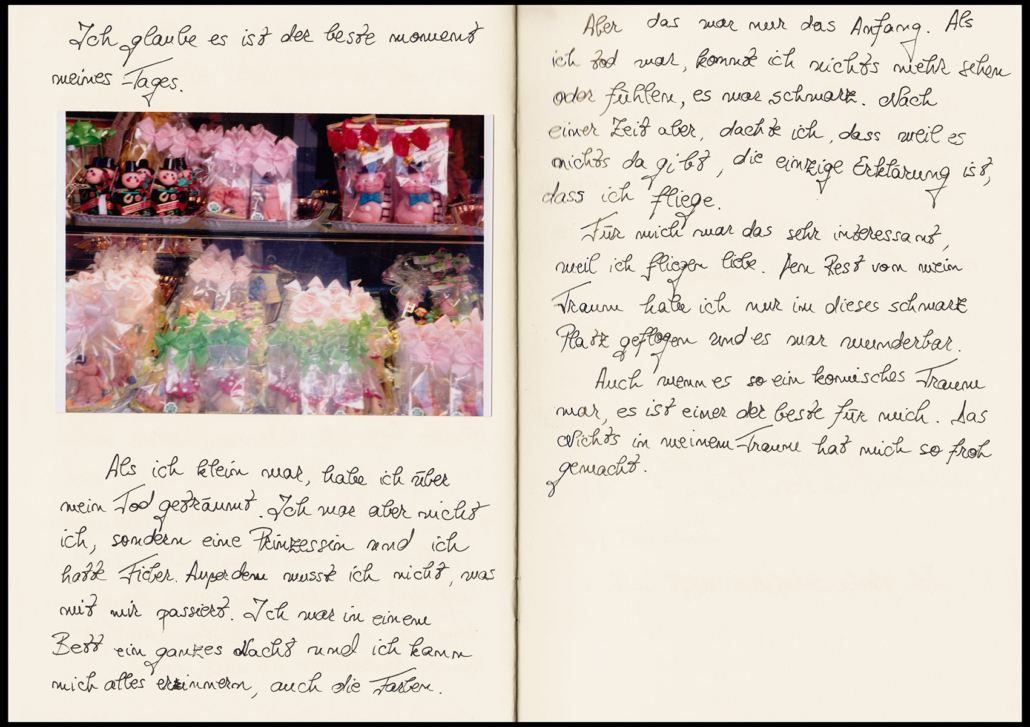 Ich glaube es ist der beste moment
meines Tages.
Als ich klein war, habe ich über
mein Tod geträumt. Ich war aber nicht
ich, sondern eine Prinzessin und ich
hatte Fieber. Außerdem wusst ich nicht, was
mit mir passiert. Ich war in einem
Bett ein ganzes Nacht und ich kann
mich alles erinnern, auch die Farben.
Aber das war nur das Anfang. Als
ich tod war, konnte ich nichts mehr sehen
oder fühlen, es war schwarz. Nach
einer Zeit aber, dachte ich, dass weil es
nichts da gibt, die einzige Erklärung ist,
dass ich fliege.
Für mich war das sehr interessant,
weil ich fliegen liebe. Den Rest von mein
Traum habe ich nur in dieses schwarz
Platz geflogen und es war wunderbar.
Auch wenn es so ein komisches Traum
war, es ist einer der beste für mich. Das
Nichts in meinem Traum hat mich so froh
gemacht.